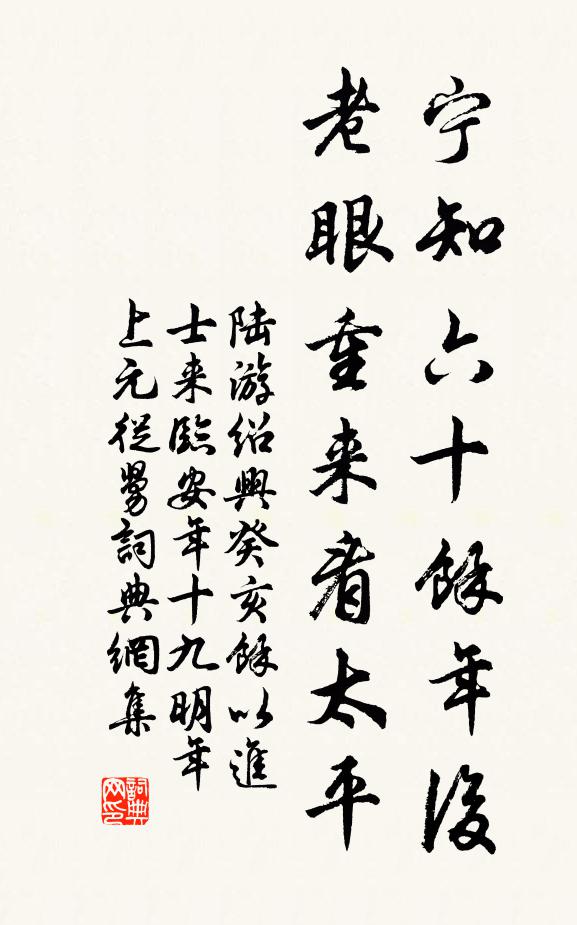 宁知六十餘年後
老眼重来看太平
陆游绍興癸亥餘以進
士来臨安年十九明年
上元從舅詞典網集
詞典
网印